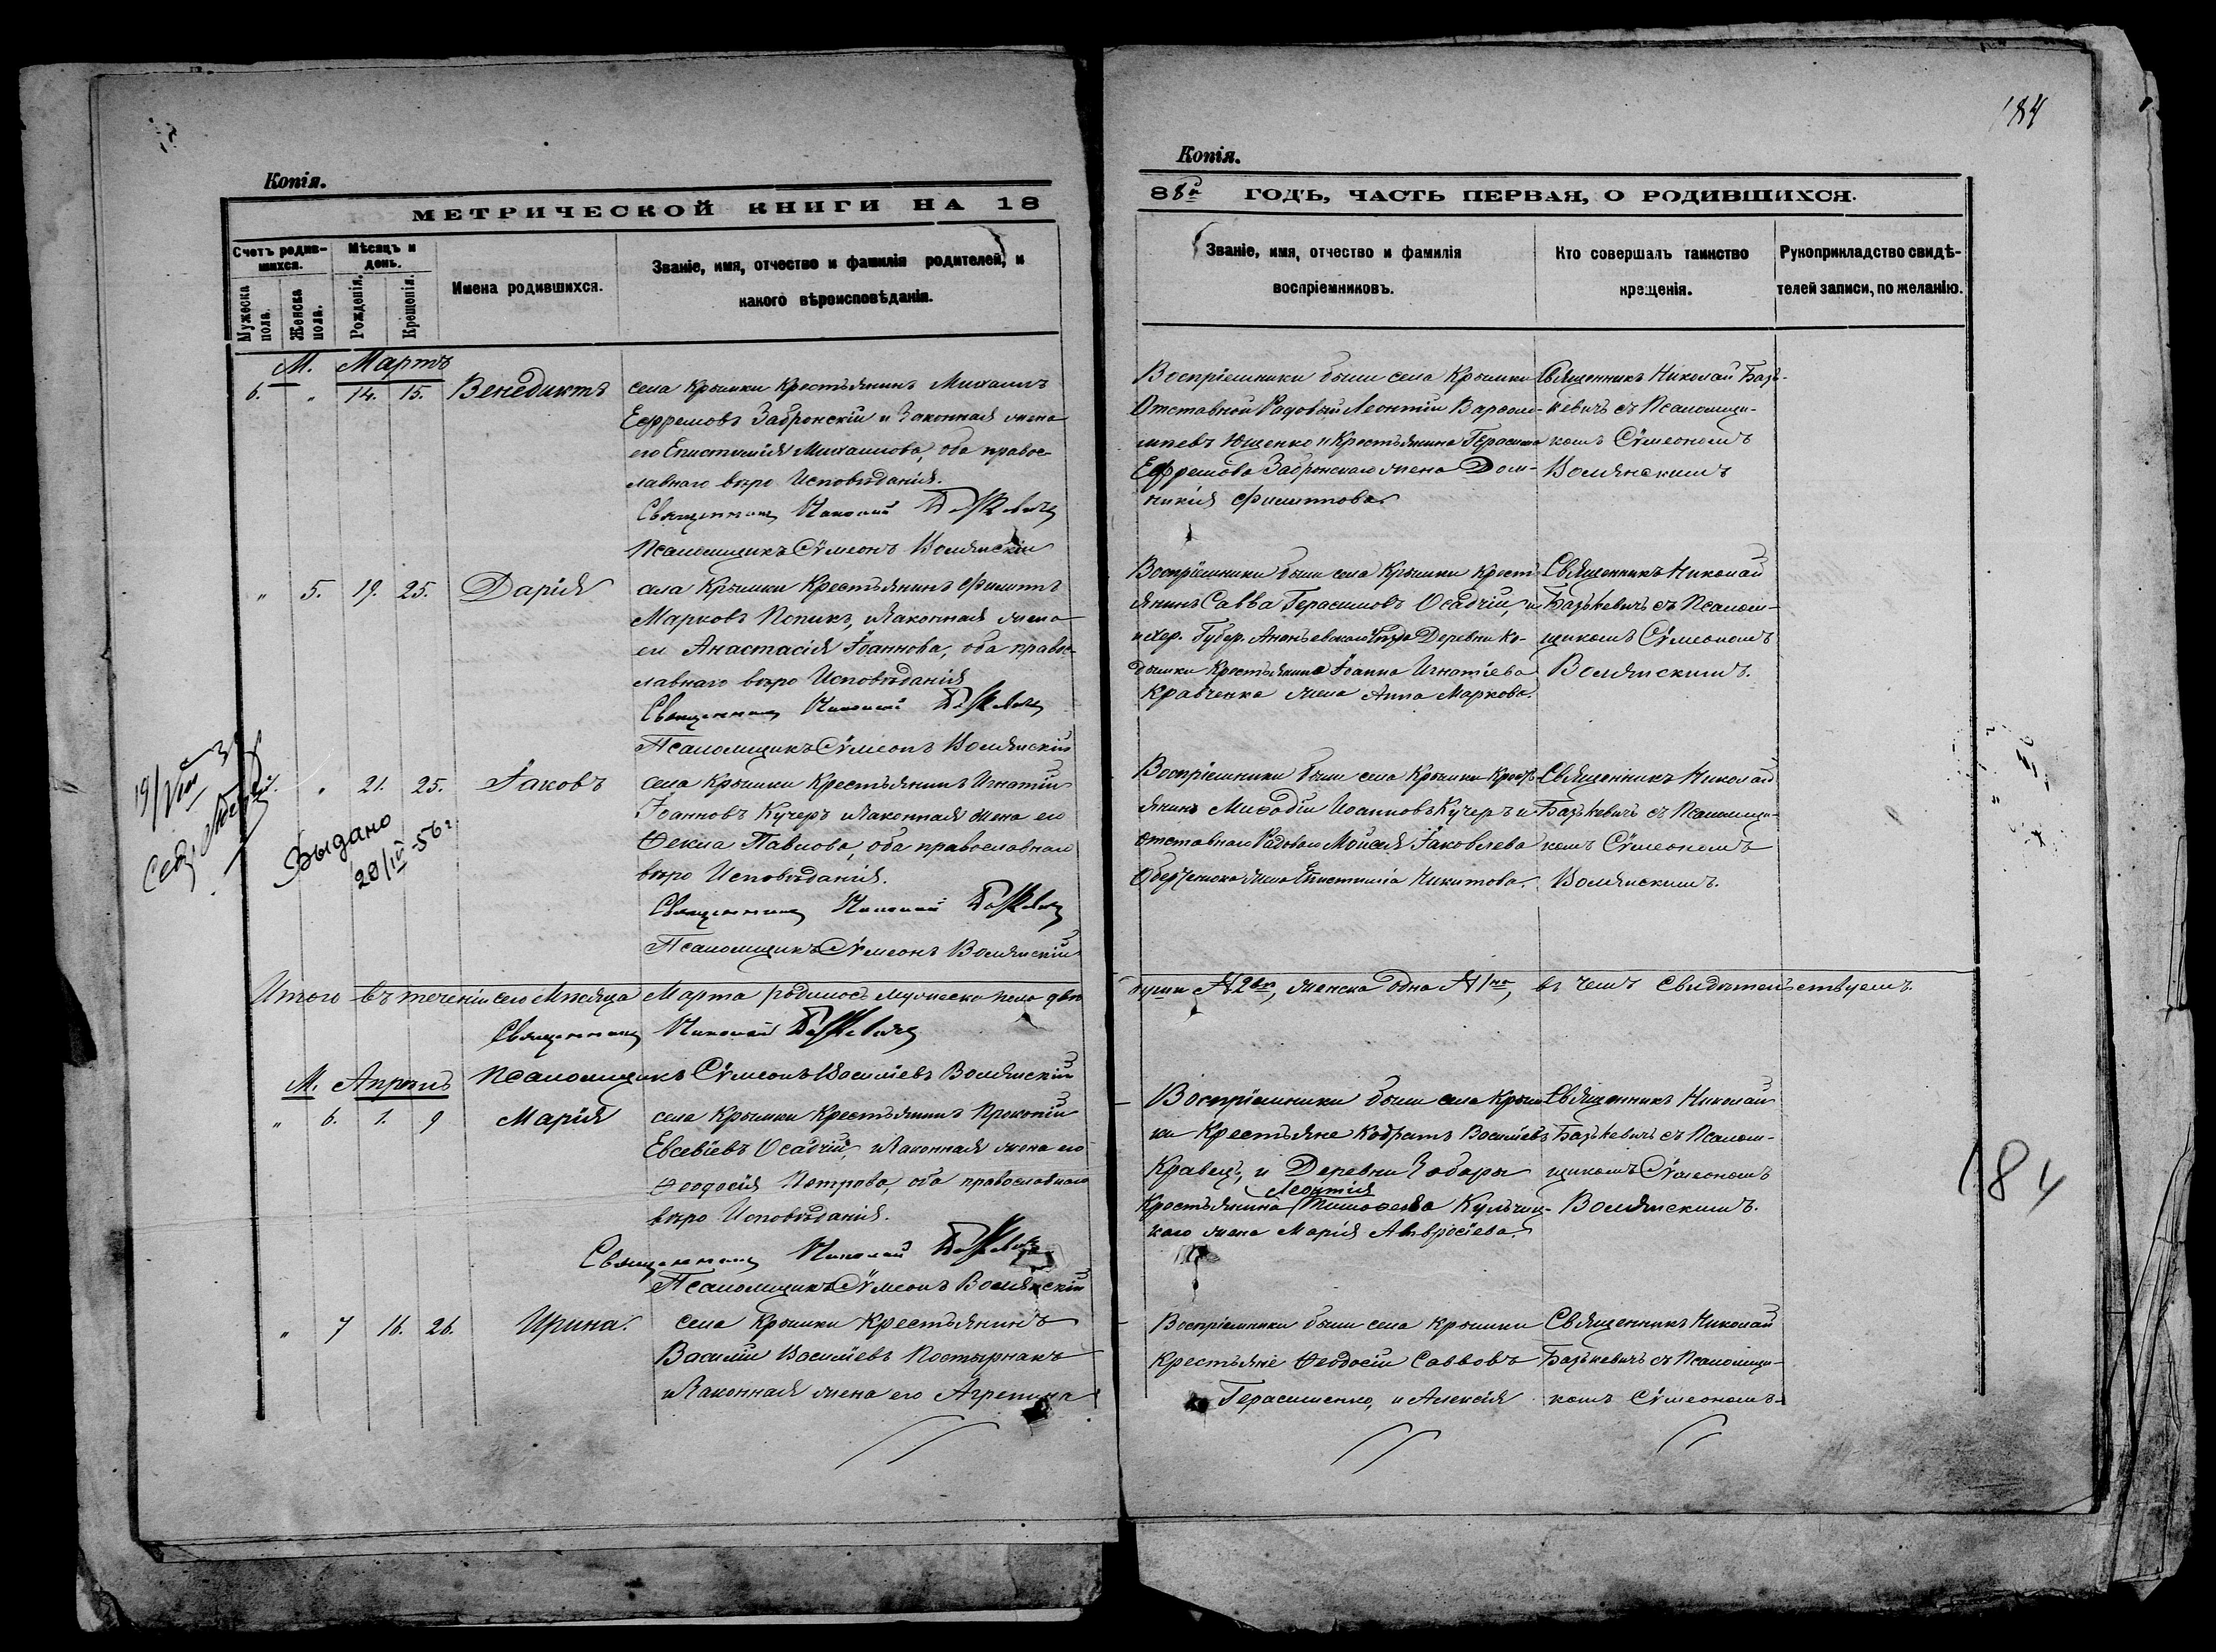 Копія.
МЕТРИЧЕСКОЙ КНИГИ НА 18
Счетъ родив-
шихся.
Мужеска
пола.
Женска
пола.
Мѣсяцъ и
день.
Рожденія.
Крещенія.
Имена родившихся.
Званіе, имя, отчество и фамилія родителей, и
какого вѣроисповѣданія.
М. Мартъ
6. " 14. 15. Венедиктъ
села Крымки Крестьянинъ Михаилъ
Ефремовъ Забронскій и Законная жена
его Епистимія Михаилова, оба правос-
лавнаго вѣро Исповѣданія.
Священникъ Николай Базькевичъ
Псаломщикъ Сѵмеонъ Волянскій
" 5. 19. 25. Дарія
села Крымки Крестьянинъ Филиппъ
Марковъ Попикъ, и Законная жена
его Анастасія Іоаннова, оба правос-
лавнаго вѣро Исповѣданія
Священникъ Николай Базькевичъ
Псаломщикъ Сѵмеонъ Волянскій
" 21. 25. Іаковъ
села Крымки Крестьянинъ Игнатій
Іоанновъ Кучеръ и Законная жена его
Ѳекла Павлова, оба православнаго
вѣро Исповѣданія.
Священникъ Николай Базькевичъ
Псаломщикъ Сѵмеонъ Волянскій
19/VIII
Выдано
20/IV-56 г.
Итого въ теченіи сего Мѣсяца Марта родилось Мужеска пола две
Священникъ Николай Базькевичъ
Псаломщикъ Сѵмеонъ Василіевъ Волянскій
М. Апрѣль
" 6. 1. 9 Марія
села Крымки Крестьянинъ Прокопій
Евсевіевъ Осадчій, и Законная жена его
Ѳеодосія Петрова, оба православнаго
вѣро Исповѣданія.
Священникъ Николай Базькевичъ
Псаломщикъ Сѵмеонъ Волянскій
" 7 16. 26. Ирина.
села Крымки Крестьянинъ
Василій Василіевъ Постырнакъ
и Законная жена его Агрепина
184
Копія.
88й ГОДЪ, ЧАСТЬ ПЕРВАЯ, О РОДИВШИХСЯ.
Званіе, имя, отчество и фамилія
воспріемниковъ.
Кто совершалъ таинство
крещенія.
Рукоприкладство свидѣ-
телей записи, по желанію.
Воспріемники были села Крымки
Отставной Рядовый Леонтій Варѳоло-
меевъ Ющенко и Крестьянина Герасима
Ефремова Забронскаго жена Дом-
никія Филиппова
Священникъ Николай Базь-
кевичъ съ Псаломщи-
комъ Сѵмеономъ
Волянскимъ
Воспріемники были села Крымки Кресть-
янинъ Савва Герасимовъ Осадчій, и
Хер. Губер. Ананьевскаго Уѣзда Деревни Ко-
дымки Крестьянина Іоанна Игнатіева
Кравченка жена Анна Маркова.
Священникъ Николай
Базькевичъ съ Псалом-
щикомъ Сѵмеономъ
Волянскимъ.
Воспріемники были села Крымки Кресть-
янинъ Меѳодій Иоанновъ Кучеръ и
отставнаго Рядоваго Мойсея Іаковлева
жена Епистимія Никитова.
Священникъ Николай
Базькевичъ съ Псаломщи-
комъ Сѵмеономъ
Волянскимъ.
души № 2ве, женска одна № 1на, въ чемъ Свидѣтельствуемъ.
Воспріемники были села Крым-
ки Крестьяне Кодратъ Василіевъ
Кравецъ, и Деревни Забары
Леонтія
Крестьянина Тимоѳеева Кульчиц-
каго жена Марія Амвросіева.
Священникъ Николай
Базькевичъ съ Псалом-
щикомъ Сѵмеономъ
Волянскимъ.
184
Воспріемники были села Крымки
Крестьяне Ѳеодосій Саввовъ
Герасименко, и Алексія
Священникъ Николай
Базькевичъ съ Псаломщи-
комъ Сѵмеономъ